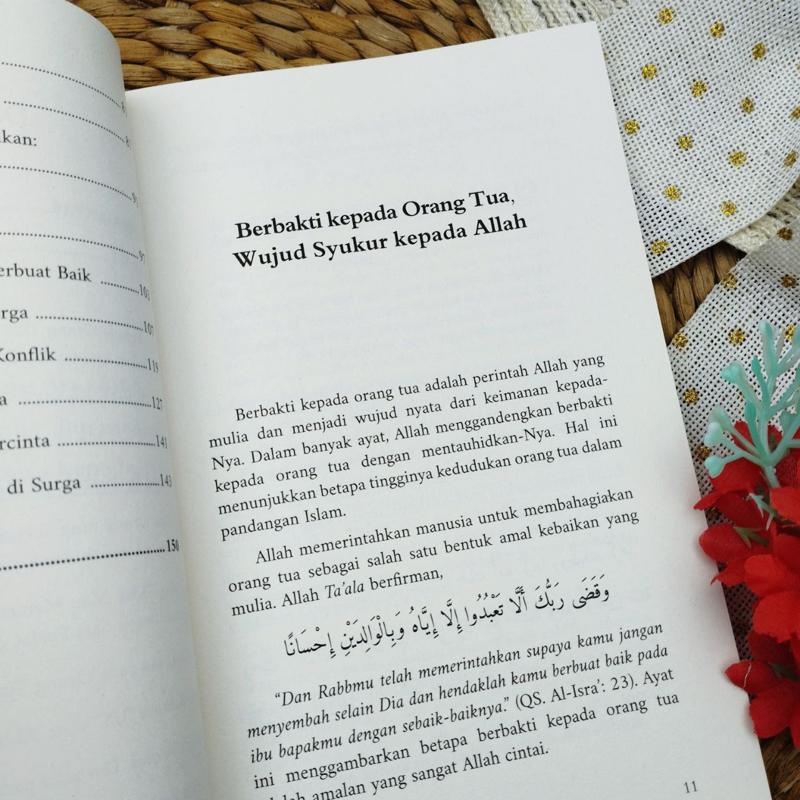 kan:
97
erbuat Baik
103
rga
107
Konflik
119
a
127
rcinta
141
di Surga
143
150
Berbakti kepada Orang Tua,
Wujud Syukur kepada Allah
Berbakti kepada orang tua adalah perintah Allah yang
mulia dan menjadi wujud nyata dari keimanan kepada-
Nya. Dalam banyak ayat, Allah menggandengkan berbakti
kepada orang tua dengan mentauhidkan-Nya. Hal ini
menunjukkan betapa tingginya kedudukan orang tua dalam
pandangan Islam.
Allah memerintahkan manusia untuk membahagiakan
orang tua sebagai salah satu bentuk amal kebaikan yang
mulia. Allah Ta'ala berfirman,
وَقَضَى رَبُّكَ أَلَّا تَعْبُدُوا إِلَّا إِيَّاهُ وَبِالْوَالِدَيْنِ إِحْسَانًا
"Dan Rabbmu telah memerintahkan supaya kamu jangan
menyembah selain Dia dan hendaklah kamu berbuat baik pada
ibu bapakmu dengan sebaik-baiknya." (QS. Al-Isra': 23). Ayat
ini menggambarkan betapa berbakti kepada orang tua
amalan yang sangat Allah cintai.
11